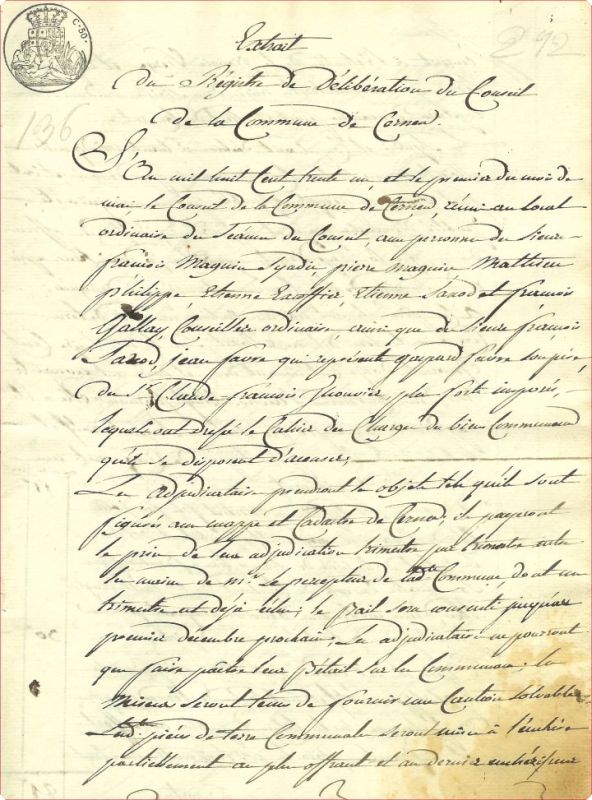 C. 50.
292
Extrait
du Régistre de Délibération du Conseil
de la Commune de Cornen.
136
L'An mil huit Cent trente un et le premier du mois de
mai le Conseil de la Commune de Cernen, réuni au local
ordinaire des Séances du Conseil, aux personnes des Sieurs
françois Magnin Syndic, pierre magnin Mathieu
philippe, Etienne Escoffier, Etienne Saxod et françois
Gallay Conseillers ordinaires, ainsi que des Sieurs françois
Saxod, jean favre qui représente gaspard favre son père,
du Sr. Claude françois Thouvier, plus forts imposés,
lequels ont dressé le Cahier des Charges des biens Communaux
qu'ils se disposent d'acenser;
Les adjudicataires prendront les objets tels qu'ils sont
figurés aux mappe et Cadastre de Cernen; ils payeront
le prix de leur adjudication trimestre par trimestre entre
les mains de mr. le percepteur de ladte Commune dont un
trimestre est déjà échu; le Bail sera consenti jusqu'au
premier décembre prochain; Les adjudicataires ne pourront
que faire paître leur Bétail sur les Communaux; les
Miseurs seront tenus de fournir une Caution solvable,
Lesdtes pièces de terre Communale seront mises à l'enchère
partiellement au plus offrant et au dernier enchérisseur